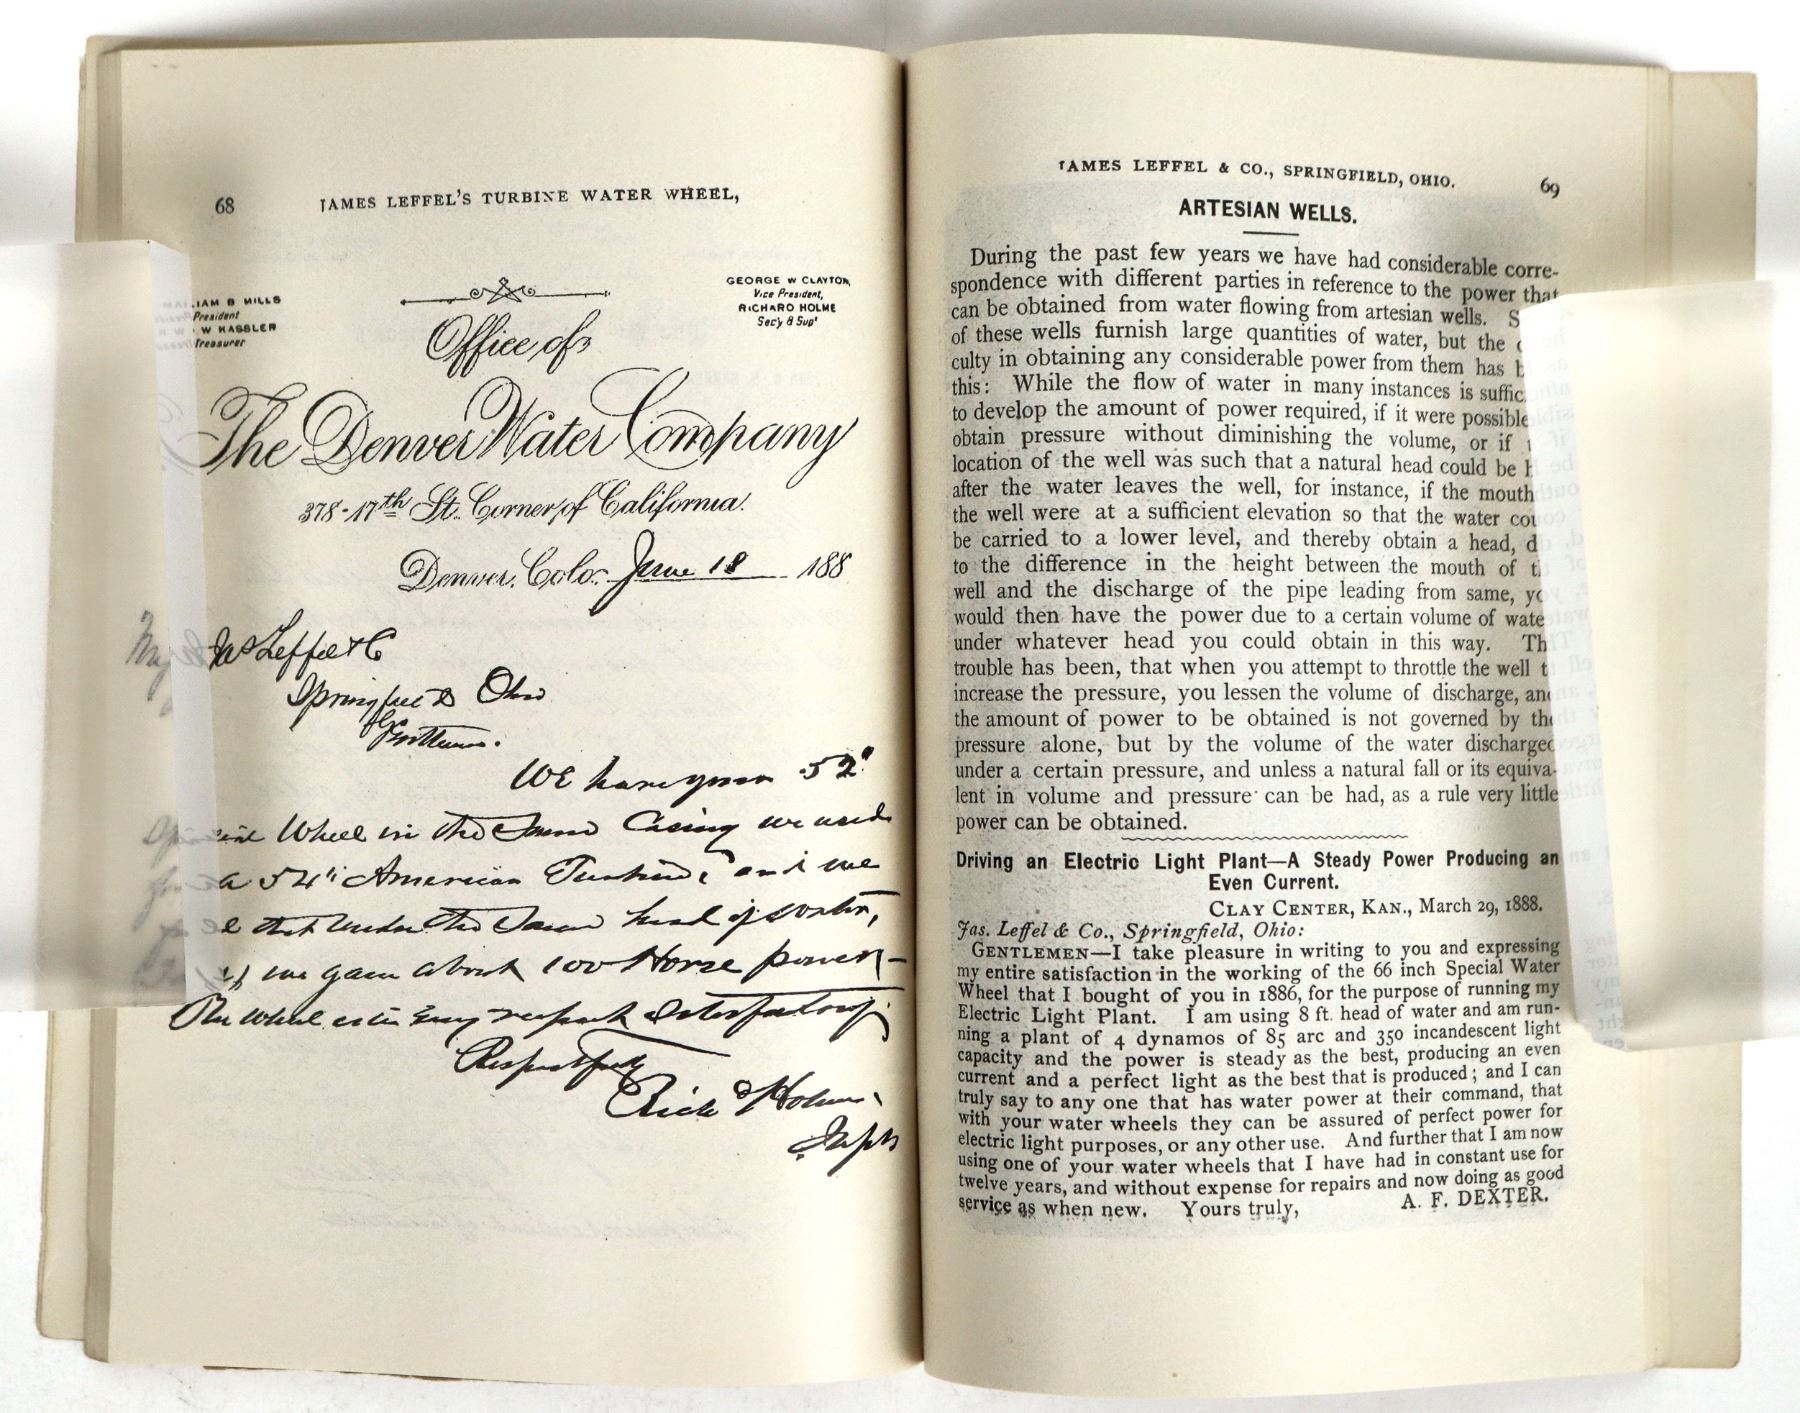 68 JAMES LEFFEL'S TURBINE WATER WHEEL,
IAM B MILLS
President
W KASSLER
Treasurer
GEORGE W CLAYTON,
Vice President,
RICHARD HOLME
Sec'y & Sup'
Office of
The Denver Water Company
378-17th St. Corner of California.
Denver, Colo. June 18 188
Jas Leffel & Co
Springfield Ohio
Gentlemen.
We have your 52"
Wheel in the Same Casing we used
a 54" American Turbine, and we
that under the Same head of water,
we gain about 100 Horse power—
The wheel is in Every respect Satisfactory
Respectfully
Rich Holme
Supt
JAMES LEFFEL & CO., SPRINGFIELD, OHIO. 69
ARTESIAN WELLS.
During the past few years we have had considerable corre-
spondence with different parties in reference to the power that
can be obtained from water flowing from artesian wells. S
of these wells furnish large quantities of water, but the
culty in obtaining any considerable power from them has b
this: While the flow of water in many instances is suffic
to develop the amount of power required, if it were possible
obtain pressure without diminishing the volume, or if
location of the well was such that a natural head could be
after the water leaves the well, for instance, if the mouth
the well were at a sufficient elevation so that the water cou
be carried to a lower level, and thereby obtain a head, d
to the difference in the height between the mouth of t
well and the discharge of the pipe leading from same, yo
would then have the power due to a certain volume of wate
under whatever head you could obtain in this way. Th
trouble has been, that when you attempt to throttle the well t
increase the pressure, you lessen the volume of discharge, and
the amount of power to be obtained is not governed by the
pressure alone, but by the volume of the water discharged
under a certain pressure, and unless a natural fall or its equiva-
lent in volume and pressure can be had, as a rule very little
power can be obtained.
Driving an Electric Light Plant—A Steady Power Producing an
Even Current.
CLAY CENTER, KAN., March 29, 1888.
Jas. Leffel & Co., Springfield, Ohio:
GENTLEMEN—I take pleasure in writing to you and expressing
my entire satisfaction in the working of the 66 inch Special Water
Wheel that I bought of you in 1886, for the purpose of running my
Electric Light Plant. I am using 8 ft. head of water and am run-
ning a plant of 4 dynamos of 85 arc and 350 incandescent light
capacity and the power is steady as the best, producing an even
current and a perfect light as the best that is produced; and I can
truly say to any one that has water power at their command, that
with your water wheels they can be assured of perfect power for
electric light purposes, or any other use. And further that I am now
using one of your water wheels that I have had in constant use for
twelve years, and without expense for repairs and now doing as good
service as when new. Yours truly, A. F. DEXTER.